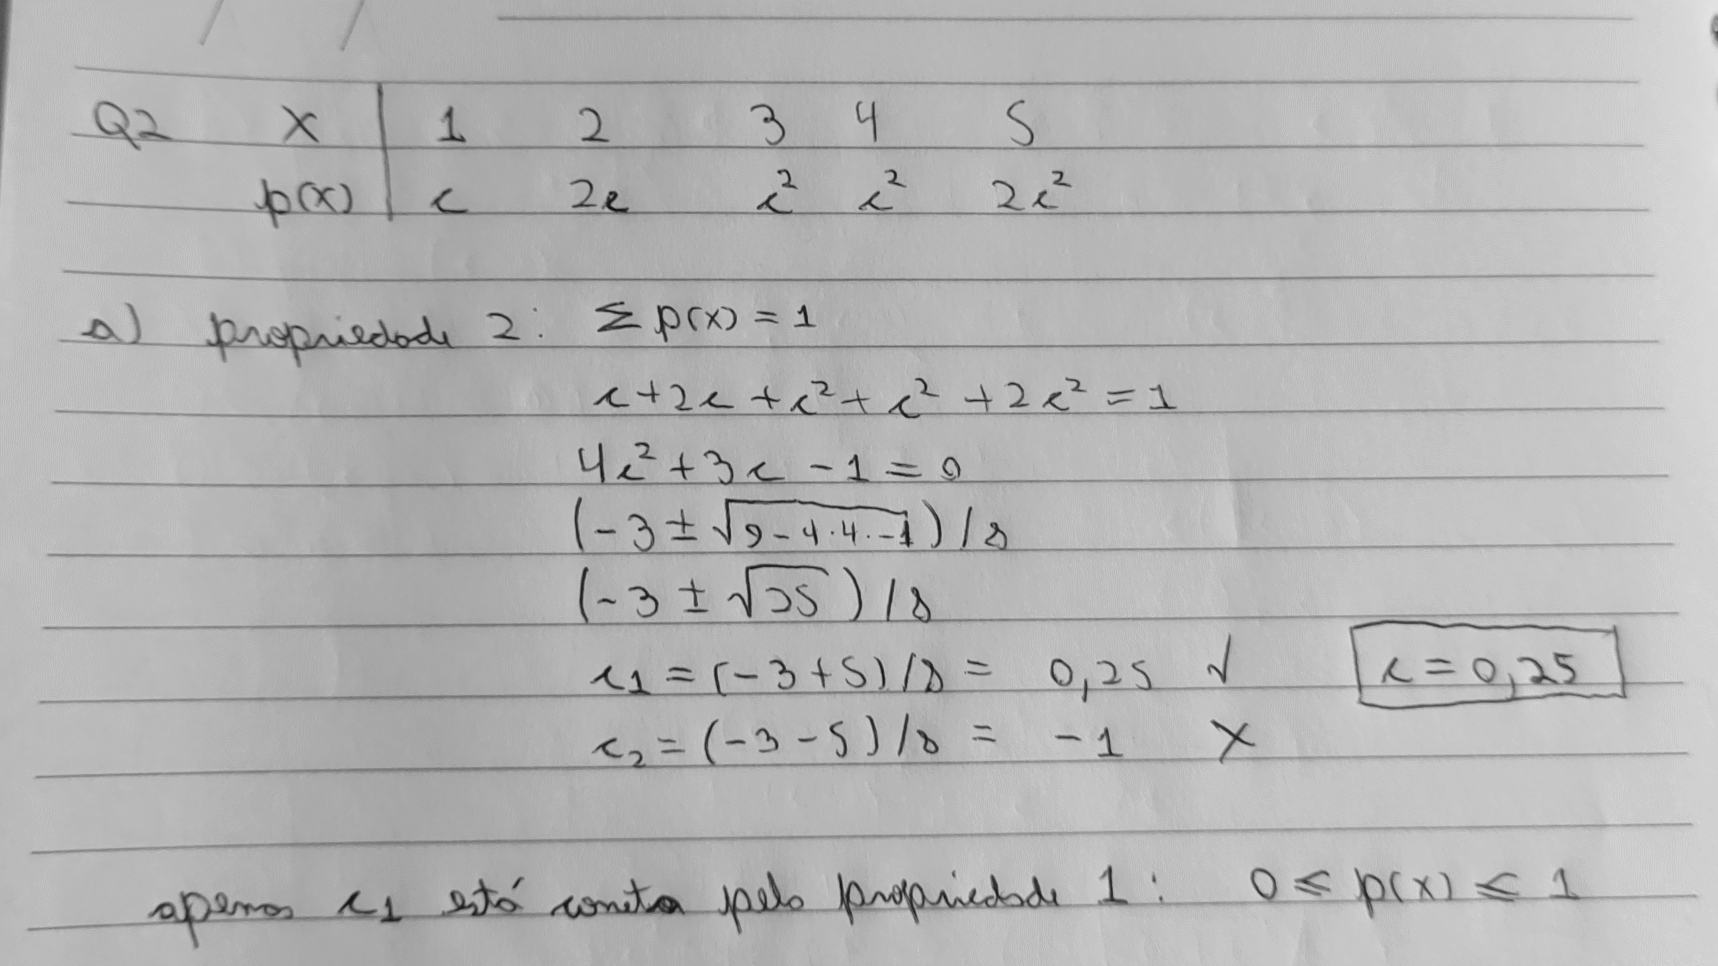 Q2 X | 1 2 3 4 5
p(x) | c 2c c² c² 2c²
a) propriedade 2: Σ p(x) = 1
c+2c+c²+c²+2c² = 1
4c²+3c-1=0
(-3 ± √9-4·4·-1)/8
(-3 ± √25)/8
c1 = (-3+5)/8 = 0,25 √ c=0,25
c2 = (-3-5)/8 = -1 X
apenas c1 está correta pela propriedade 1: 0 ≤ p(x) ≤ 1